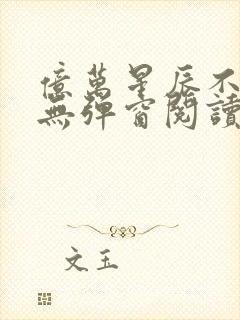 億萬星辰不
無彈窗閱讀
文玉